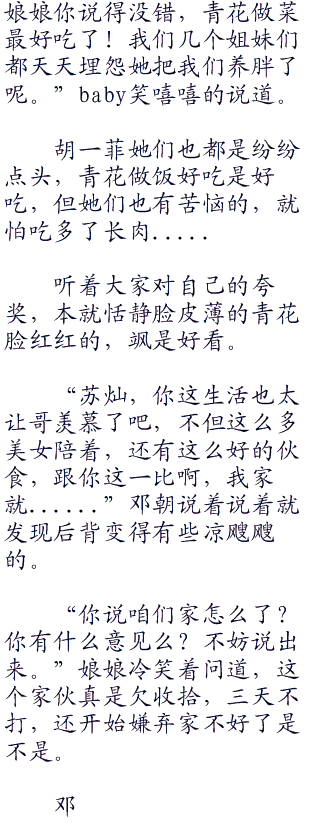 娘娘你说得没错，青花做菜
最好吃了！我们几个姐妹们
都天天埋怨她把我们养胖了
呢。”baby笑嘻嘻的说道。
胡一菲她们也都是纷纷
点头，青花做饭好吃是好
吃，但她们也有苦恼的，就
怕吃多了长肉.....
听着大家对自己的夸
奖，本就恬静脸皮薄的青花
脸红红的，飒是好看。
“苏灿，你这生活也太
让哥羡慕了吧，不但这么多
美女陪着，还有这么好的伙
食，跟你这一比啊，我家
就......”邓朝说着说着就
发现后背变得有些凉飕飕
的。
“你说咱们家怎么了？
你有什么意见么？不妨说出
来。”娘娘冷笑着问道，这
个家伙真是欠收拾，三天不
打，还开始嫌弃家不好了是
不是。
邓